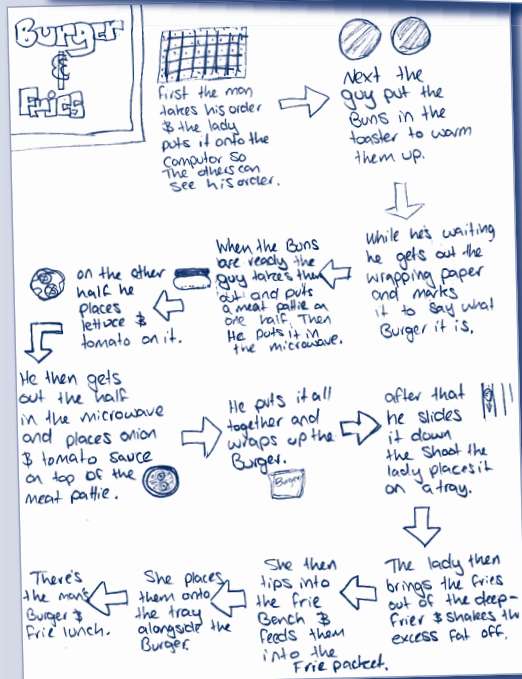 Burger
&
Fries
First the man
takes his order
& the lady
puts it onto the
Computor so
The others can
see his order.
Next the
guy put the
Buns in the
toaster to warm
them up.
While he's waiting
he gets out the
wrapping paper
and marks
it to say what
Burger it is.
When the Buns
are ready the
guy takes them
out and puts
a meat pattie on
one half. Then
He puts it in
the microwave.
on the other
half he
places
lettuce &
tomato on it.
He then gets
out the half
in the microwave
and places onion
& tomato sauce
on top of the
meat pattie.
He puts it all
together and
wraps up the
Burger.
Burger
after that
he slides
it down
the shoot the
lady places it
on a tray.
The lady then
brings the fries
out of the deep-
frier & shakes the
excess fat off.
She then
tips into
the frie
Bench &
feeds them
into the
Frie packet.
She places
them onto
the tray
alongside the
Burger.
There's
the man's
Burger &
Frie lunch.